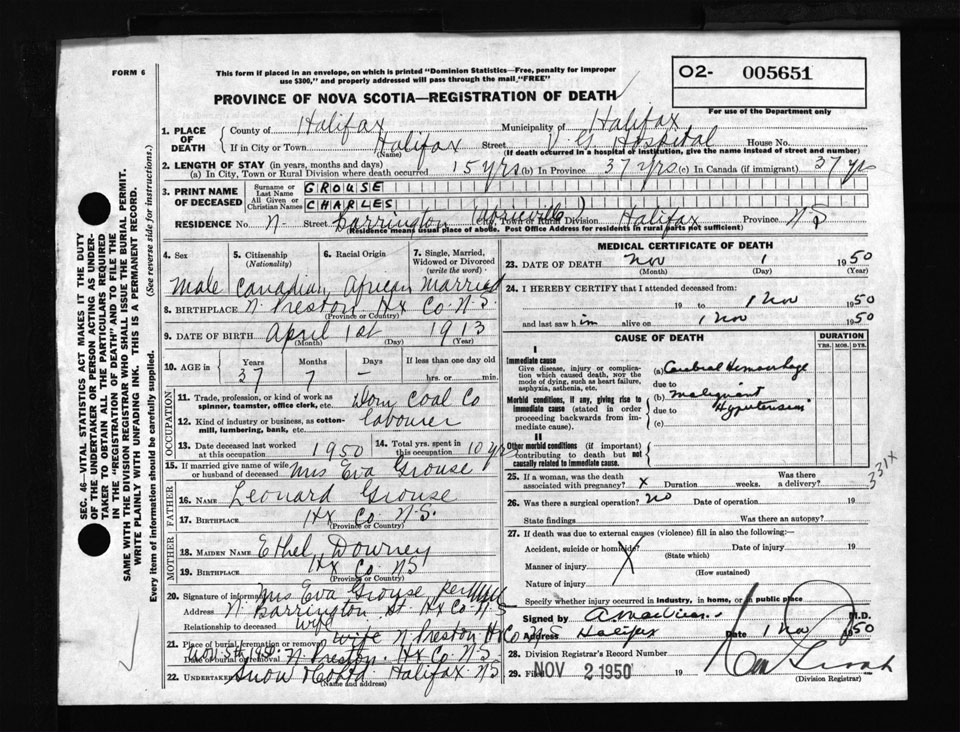 FORM 6
This form if placed in an envelope, on which is printed "Dominion Statistics—Free, penalty for improper
use $300," and properly addressed will pass through the mail "FREE"
O2- 005651
For use of the Department only
PROVINCE OF NOVA SCOTIA—REGISTRATION OF DEATH
1. PLACE OF DEATH County of Halifax Municipality of Halifax
If in City or Town Halifax Street V. G. Hospital House No.
(Name) (If death occurred in a hospital or institution, give the name instead of street and number)
2. LENGTH OF STAY (in years, months and days)
(a) In City, Town or Rural Division where death occurred 15 yrs (b) In Province 37 yrs (c) In Canada (if immigrant) 37 yrs
3. PRINT NAME OF DECEASED Surname or Last Name GROUSE
All Given or Christian Names CHARLES
RESIDENCE No. N Street Barrington (Africville) City, Town or Rural Division Halifax Province N S
(Residence means usual place of abode. Post Office Address for residents in rural parts not sufficient)
4. Sex 5. Citizenship (Nationality) 6. Racial Origin 7. Single, Married, Widowed or Divorced (write the word)
Male Canadian African Married
8. BIRTHPLACE N Preston Hx Co N.S.
(Province or Country)
9. DATE OF BIRTH April 1st 1913
(Month) (Day) (Year)
10. AGE in Years Months Days If less than one day old
37 7 – hrs. or min.
OCCUPATION
11. Trade, profession, or kind of work as spinner, teamster, office clerk, etc. Dom Coal Co
12. Kind of industry or business, as cotton-mill, lumbering, bank, etc. labourer
13. Date deceased last worked at this occupation 1950 14. Total yrs. spent in this occupation 10 yrs
15. If married give name of wife or husband of deceased Mrs Eva Grouse
FATHER
16. NAME Leonard Grouse
17. BIRTHPLACE Hx Co N.S.
(Province or Country)
MOTHER
18. MAIDEN NAME Ethel Downey
19. BIRTHPLACE Hx Co NS
(Province or Country)
20. Signature of informant Mrs Eva Grouse
Address N. Barrington St. Hx Co N-S
Relationship to deceased wife
21. Place of burial, cremation or removal wife N Preston Hx Co N.S
Date of burial or removal Nov. 5th 1950 N Preston. Hx Co N.S.
22. UNDERTAKER Snow Halifax NS
(Name and address)
MEDICAL CERTIFICATE OF DEATH
23. DATE OF DEATH Nov 1 1950
(Month) (Day) (Year)
24. I HEREBY CERTIFY that I attended deceased from:
19 to 1 Nov 1950
and last saw him alive on 1 Nov 1950
CAUSE OF DEATH DURATION
YRS. MOS. DYS.
I
Immediate cause
Give disease, injury or complication which caused death, NOT the mode of dying, such as heart failure, asphyxia, asthenia, etc.
(a) Cerebral Hemorrhage
due to
Morbid conditions, if any, giving rise to immediate cause (stated in order proceeding backwards from immediate cause).
(b) malignant
due to Hypertension
(c)
II
Other morbid conditions (if important) contributing to death but not causally related to immediate cause.
331X
25. If a woman, was the death associated with pregnancy? X Duration weeks. Was there a delivery?
26. Was there a surgical operation? No Date of operation 19
State findings Was there an autopsy?
27. If death was due to external causes (violence) fill in also the following:
Accident, suicide or homicide? Date of injury 19
(State which)
Manner of injury X
(How sustained)
Nature of injury
Specify whether injury occurred in industry, in home, or in public place
Signed by M.D.
Address Halifax Date 1 Nov 1950
28. Division Registrar's Record Number
29. Filed NOV 2 1950 19
(Division Registrar)
SEC. 46—VITAL STATISTICS ACT MAKES IT THE DUTY
OF THE UNDERTAKER OR PERSON ACTING AS UNDERTAKER TO OBTAIN ALL THE PARTICULARS REQUIRED
IN THE "REGISTRATION OF DEATH" AND TO FILE THE
SAME WITH THE DIVISION REGISTRAR WHO SHALL ISSUE THE BURIAL PERMIT.
WRITE PLAINLY WITH UNFADING INK. THIS IS A PERMANENT RECORD.
Every item of information should be carefully supplied. (See reverse side for instructions.)